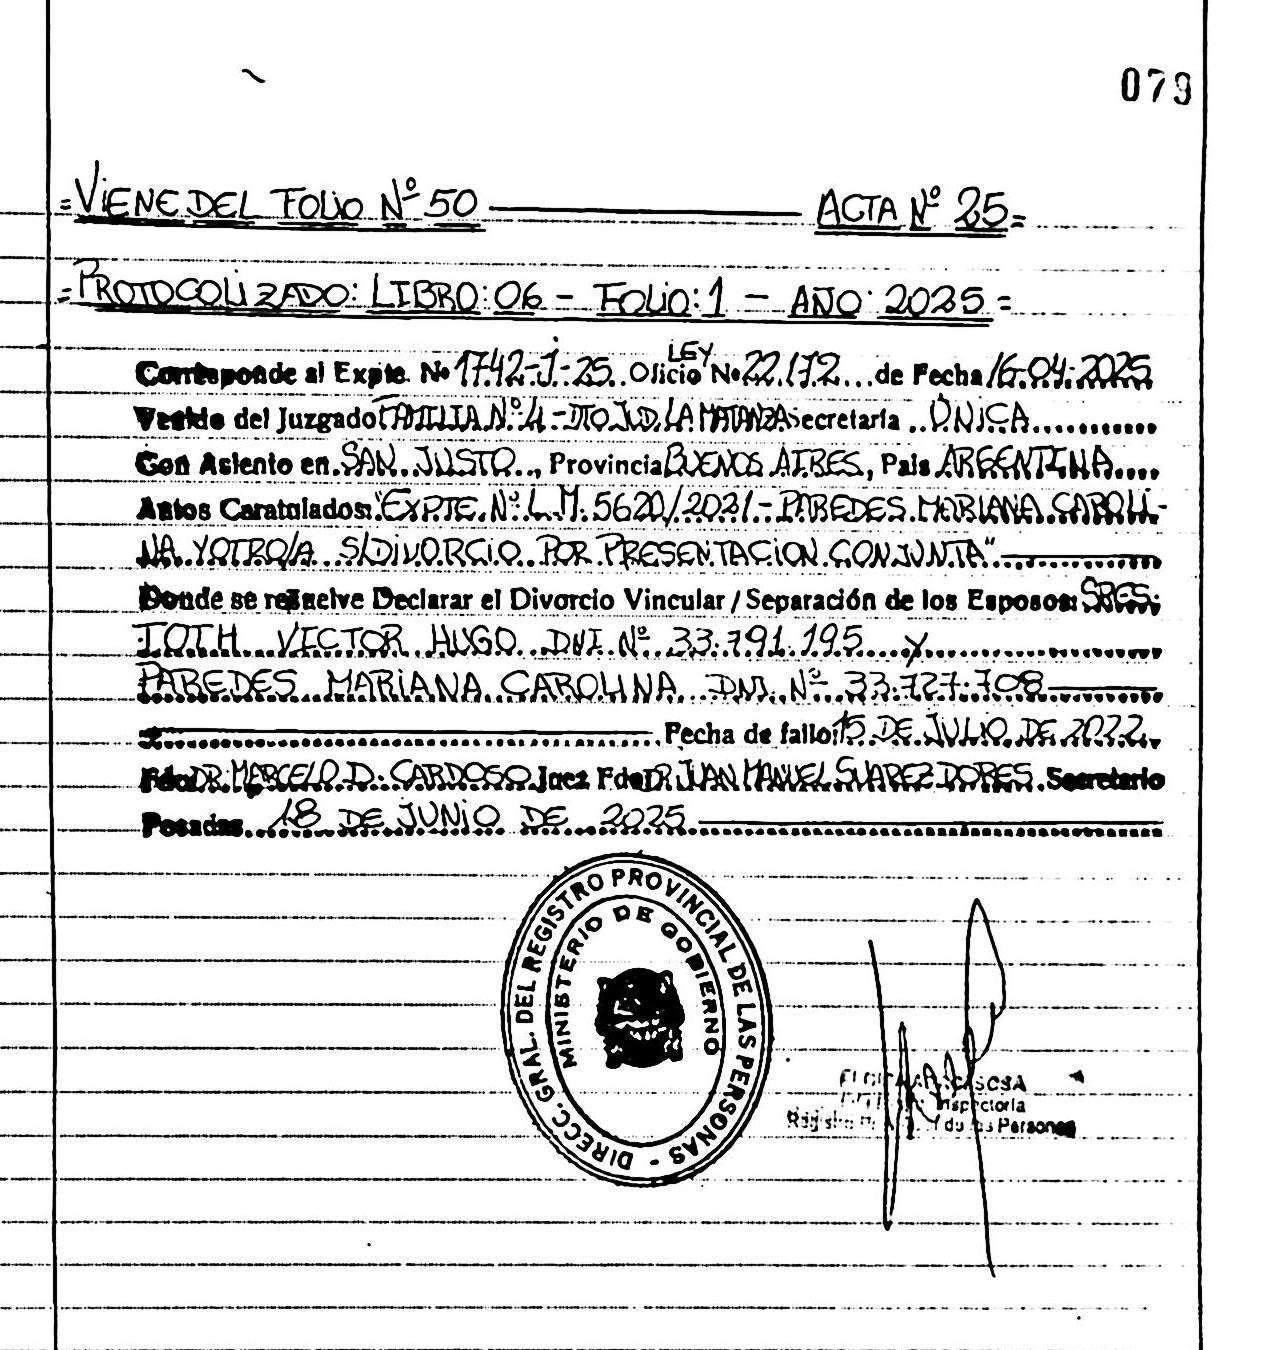 079
=VIENE DEL FOLIO Nº 50 ACTA Nº 25=
=PROTOCOLIZADO: LIBRO: 06 - FOLIO: 1 - AÑO: 2025=
Corresponde al Expte. Nº 1742-J-25 Oficio LEY Nº 22.172 de Fecha 16-04-2025
Venido del Juzgado FAMILIA Nº 4 - DTO JUD. LA MATANZA Secretaría ÚNICA
Con Asiento en SAN JUSTO, Provincia BUENOS AIRES, País ARGENTINA
Autos Caratulados: "EXPTE. Nº L.M. 5620/2021 - PAREDES MARIANA CAROLI-
NA Y OTRO/A S/DIVORCIO POR PRESENTACION CONJUNTA"
Donde se resuelve Declarar el Divorcio Vincular / Separación de los Esposos: SRES.
TOTH VICTOR HUGO DNI Nº 33.791.195 y
PAREDES MARIANA CAROLINA DNI. Nº 33.727.708
Fecha de fallo: 15 DE JULIO DE 2022
Fdo: DR. MARCELO D. CARDOSO Juez Fdo DR. JUAN MANUEL SUAREZ DORES Secretario
Posadas, 18 DE JUNIO DE 2025
DIRECC. GRAL. DEL REGISTRO PROVINCIAL DE LAS PERSONAS -
MINISTERIO DE GOBIERNO
SOSA
Inspectoría
de las Personas